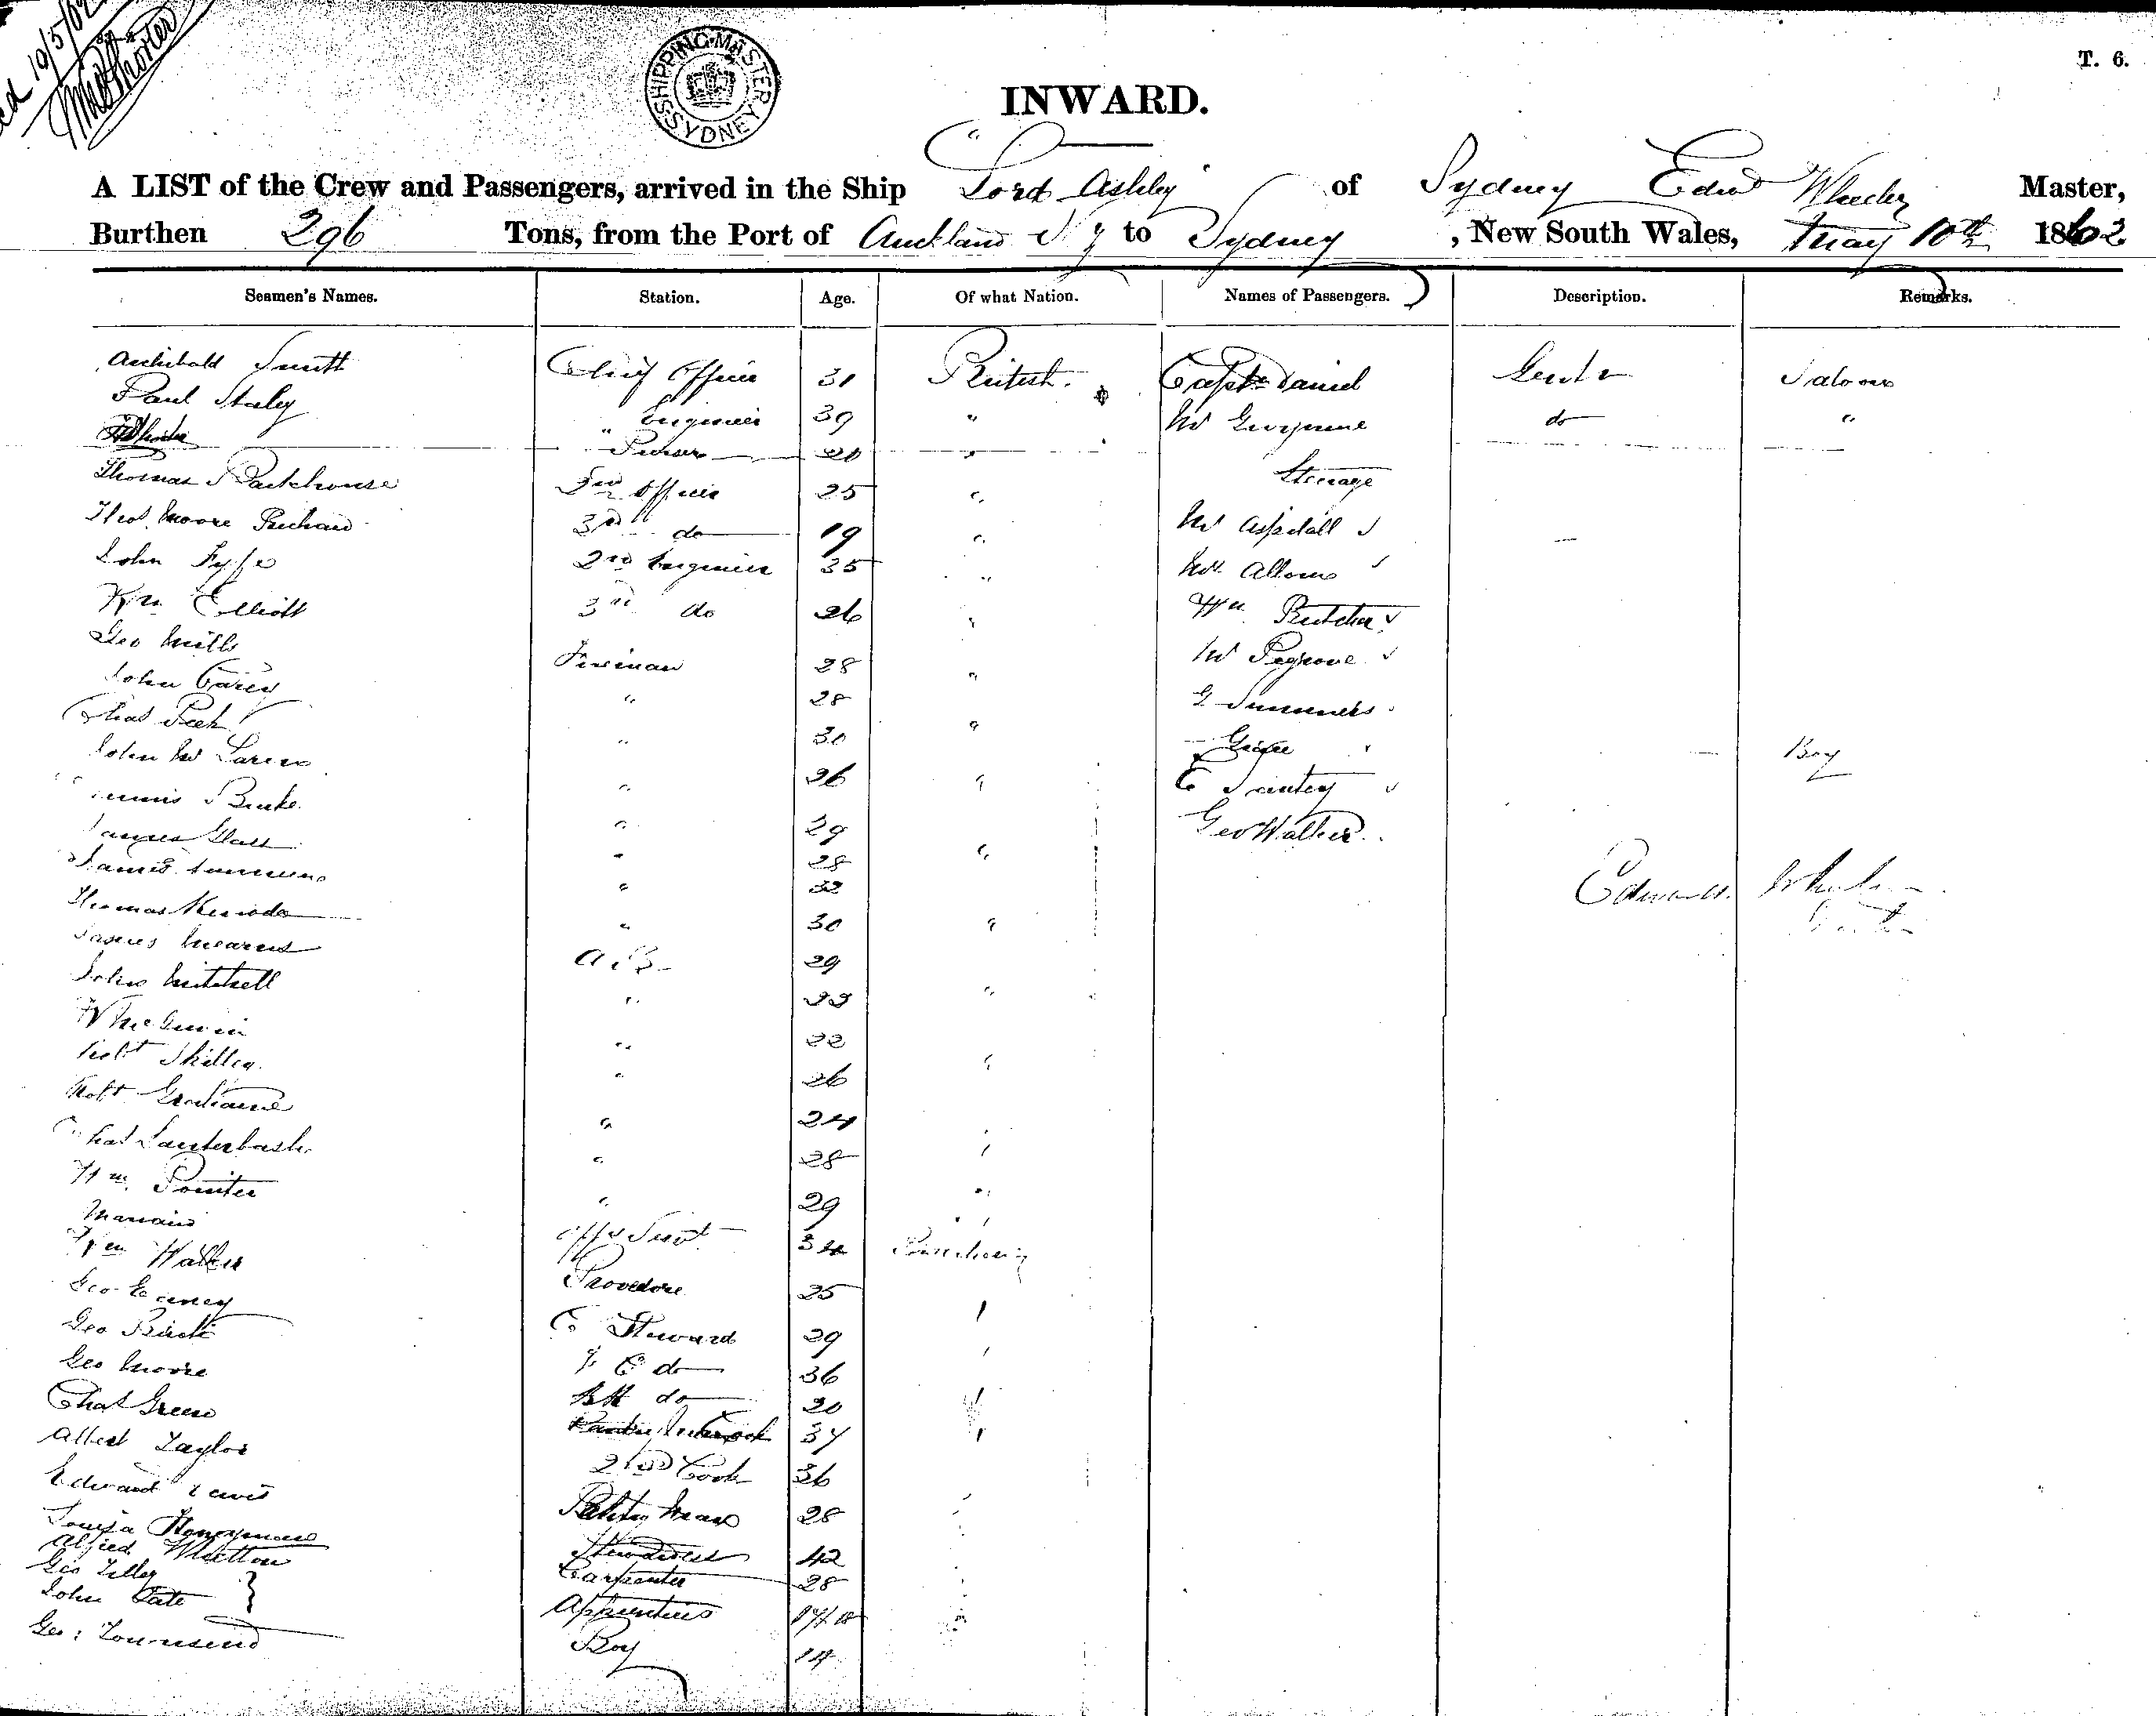 19/5/62
SHIPPING MASTER SYDNEY
T. 6.
INWARD.
A LIST of the Crew and Passengers, arrived in the Ship Lord Ashley of Sydney Edwd Wheeler Master,
Burthen 296 Tons, from the Port of Auckland N Z to Sydney, New South Wales, May 10th 1862
Seamen's Names. Station. Age. Of what Nation. Names of Passengers. Description. Remarks.
Archibald Smith Chief Officer 31 British. Captn Daniel Gentn Saloon
Paul Staley " Engineer 39 " Mr Gwynne do "
Purser 20 "
Steerage
Thomas Backhouse 2nd Officer 25 "
Thos. Moore Prichard 3rd do 19 " Mr Aspdall
John Fyfe 2nd Engineer 35 " Mr Allom
Wm Elliott 3rd do 26 " Wm Butcher
Geo Mills Fireman 28 " Mr Pegrove
John Carey " 28 G Summers
Chas Peek " 30 " Boy
John Mc Laren " 26 " E
Burke " 29 Geo Walker
James Glass " 28 "
James " 32 Edward Wheeler
Thomas Kermode " 30 " Master
James Mearns A.B. 29
John Mitchell " 33 "
W McGuin " 22
Robt Skilley " 26 "
Robt Grahame " 24
Chas Lauterbach " 28 "
Wm Pointer " 29 "
34
Wm Walker Provedore 25
Geo Steward 29
Geo do 36
Geo Moore do 20
Chas Green 37
Albert Taylor 2nd Cook 36
Edward Lewis Pantry man 28
Louisa Honeyman Stewardess 42
Alfred Whitton Carpenter 28
Geo Tilley }
John Tate } Apprentices 17/18
Geo: Townsend Boy 14